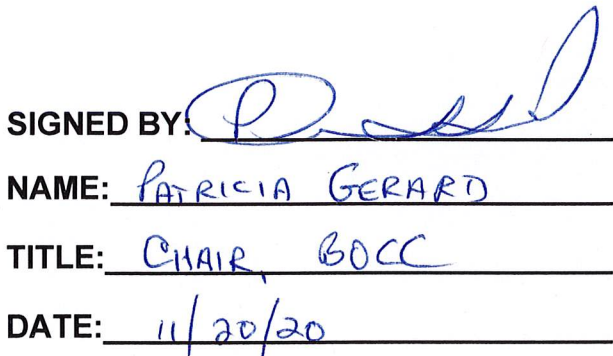 SIGNED BY:
NAME: PATRICIA GERARD
TITLE: CHAIR, BOCC
DATE: 11/20/20